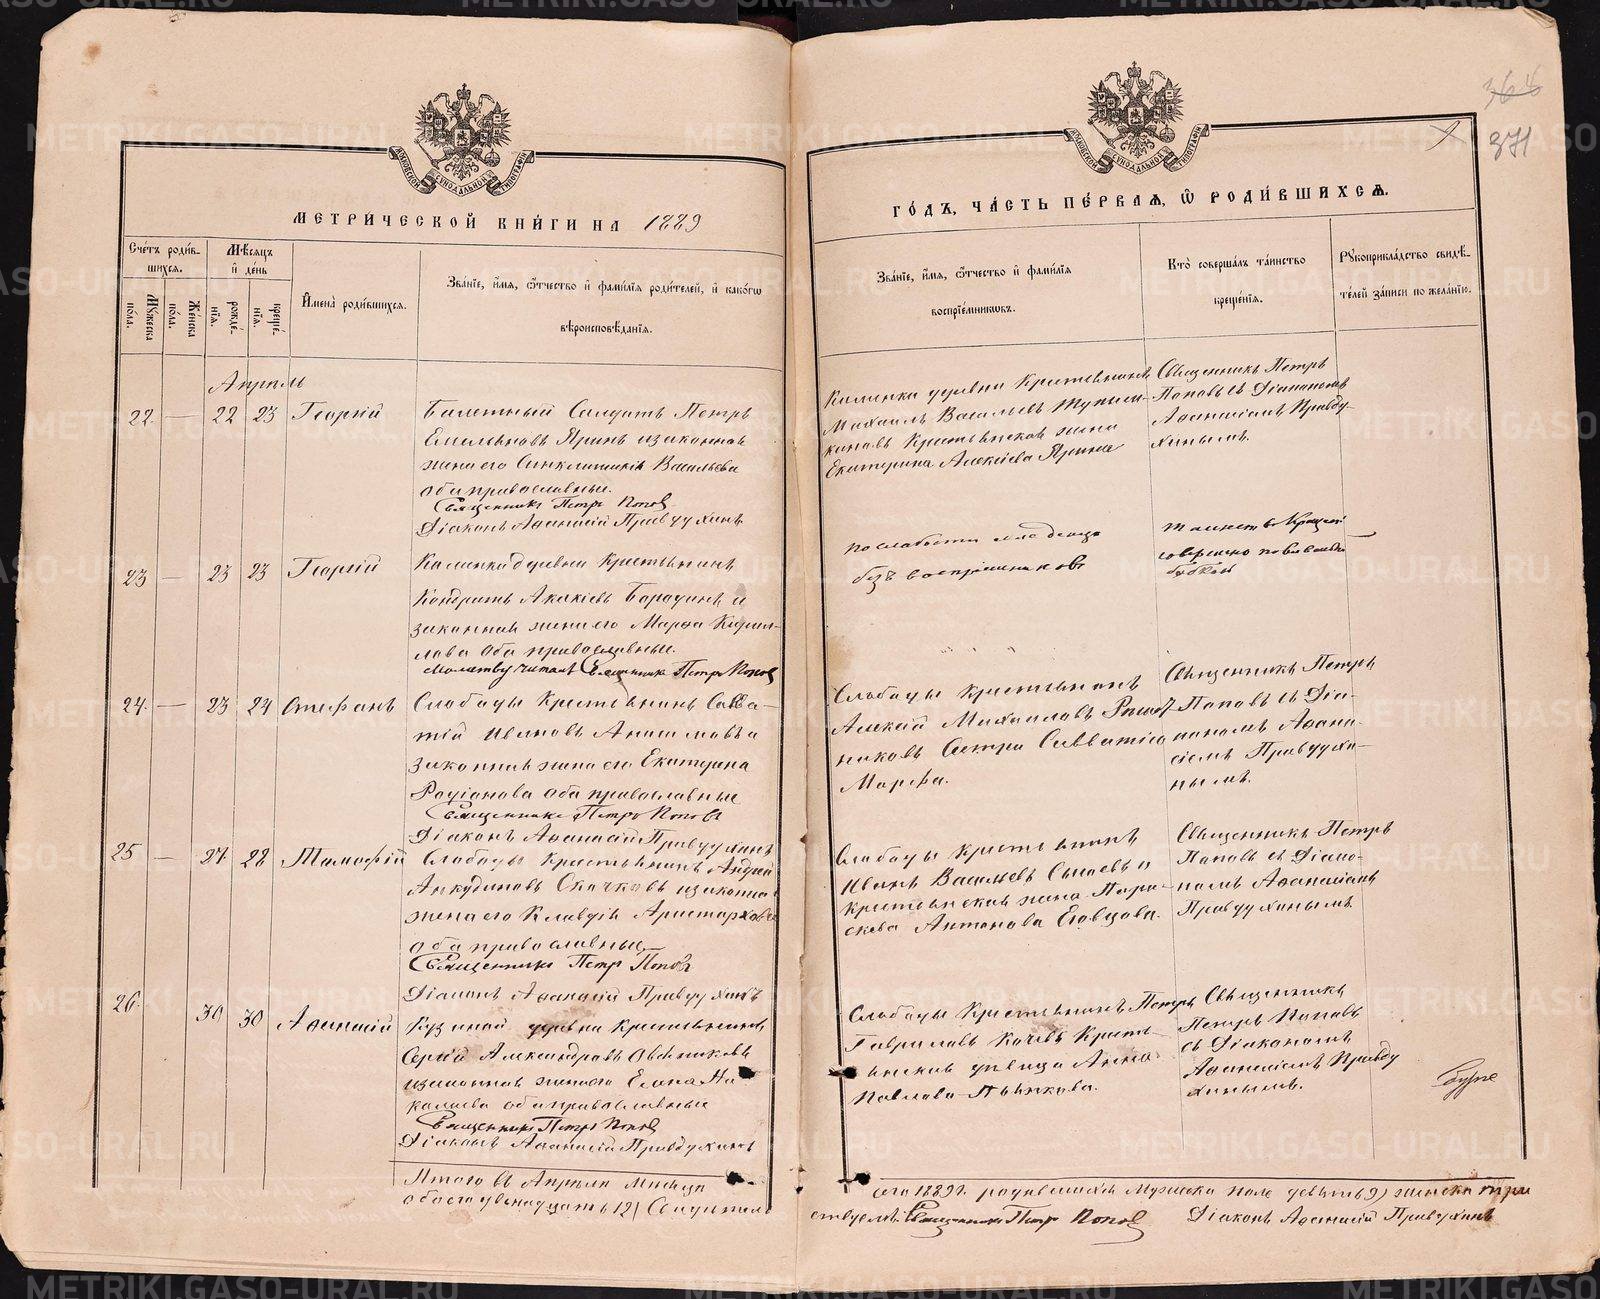 МЕТРИЧЕСКОЙ КНИГИ НА 1889
Счетъ родив-
шихся.
Мѣсяцъ
и день
Мужеска
пола.
Женска
пола.
рожде-
нія.
креще-
нія.
Имена родившихся.
Званіе, имя, отчество и фамилія родителей, и какого
вѣроисповѣданія.
Апрель
22 — 22 23 Георгій
Билетный Солдатъ Петръ
Емельяновъ Яринъ и законная
жена его Синклитикія Васильева
оба православные.
Священникъ Петръ Поповъ
Діаконъ Афанасій Правдухинъ
23 — 23 23 Георгій
Калинки деревни Крестьянинъ
Кондратъ Акакіевъ Бородинъ и
законная жена его Марфа Кирил-
лова оба православные.
Молитву читалъ Священникъ Петръ Поповъ
24 — 23 24 Стефанъ
Слободы Крестьянинъ Савва-
тій Ивановъ
законная жена его Екатерина
Родіонова оба православные
Священникъ Петръ Поповъ
Діаконъ Афанасій Правдухинъ
25 — 27 28 Тимофій
Слободы Крестьянинъ Андрей
Анкудиновъ Скачковъ и законная
жена его Клавдія Аристархова
оба православные
Священникъ Петръ Поповъ
Діаконъ Афанасій Правдухинъ
26 30 30 Афанасій
деревни Крестьянинъ
Сергій Александровъ Овчинниковъ
и законная жена его Елена
оба православные
Священникъ Петръ Поповъ
Діаконъ Афанасій Правдухинъ
Итого въ Апреле месяце
обоего двенадцать 12)
364
371
ГОДЪ, ЧАСТЬ ПЕРВАЯ, О РОДИВШИХСЯ.
Званіе, имя, отчество и фамилія
воспріемниковъ.
Кто совершалъ таинство
крещенія.
Рукоприкладство свидѣ-
телей записи по желанію.
Калинки деревни Крестьянинъ
Михаилъ Васильевъ
Крестьянская жена
Екатерина Алексіева Ярина
Священникъ Петръ
Поповъ съ Діакономъ
Афанасіемъ Правду-
хинымъ.
По слабости младенца
безъ воспріемниковъ
таинство Крещенія
совершено повивальной
бабкой
Слободы Крестьянинъ
Алексій Михаиловъ
сестра Савватія
Марфа.
Священникъ Петръ
Поповъ съ Діа-
кономъ Афана-
сіемъ Правдухи-
нымъ.
Слободы Крестьянинъ
Иванъ Васильевъ Сысоевъ и
Крестьянская жена Пара-
скева Антонова
Священникъ Петръ
Поповъ съ Діако-
номъ Афанасіемъ
Правдухинымъ
Слободы Крестьянинъ Петръ
Гавриловъ Качевъ Кресть-
янская девица Анна
Павлова
Священникъ
Петръ Поповъ
съ Діакономъ
Афанасіемъ Правду
хинымъ.
сего 1889 г. родившихся Мужеска пола девять 9) женска три
Священникъ Петръ Поповъ Діаконъ Афанасій Правдухинъ
METRIKI.GASO-URAL.RU